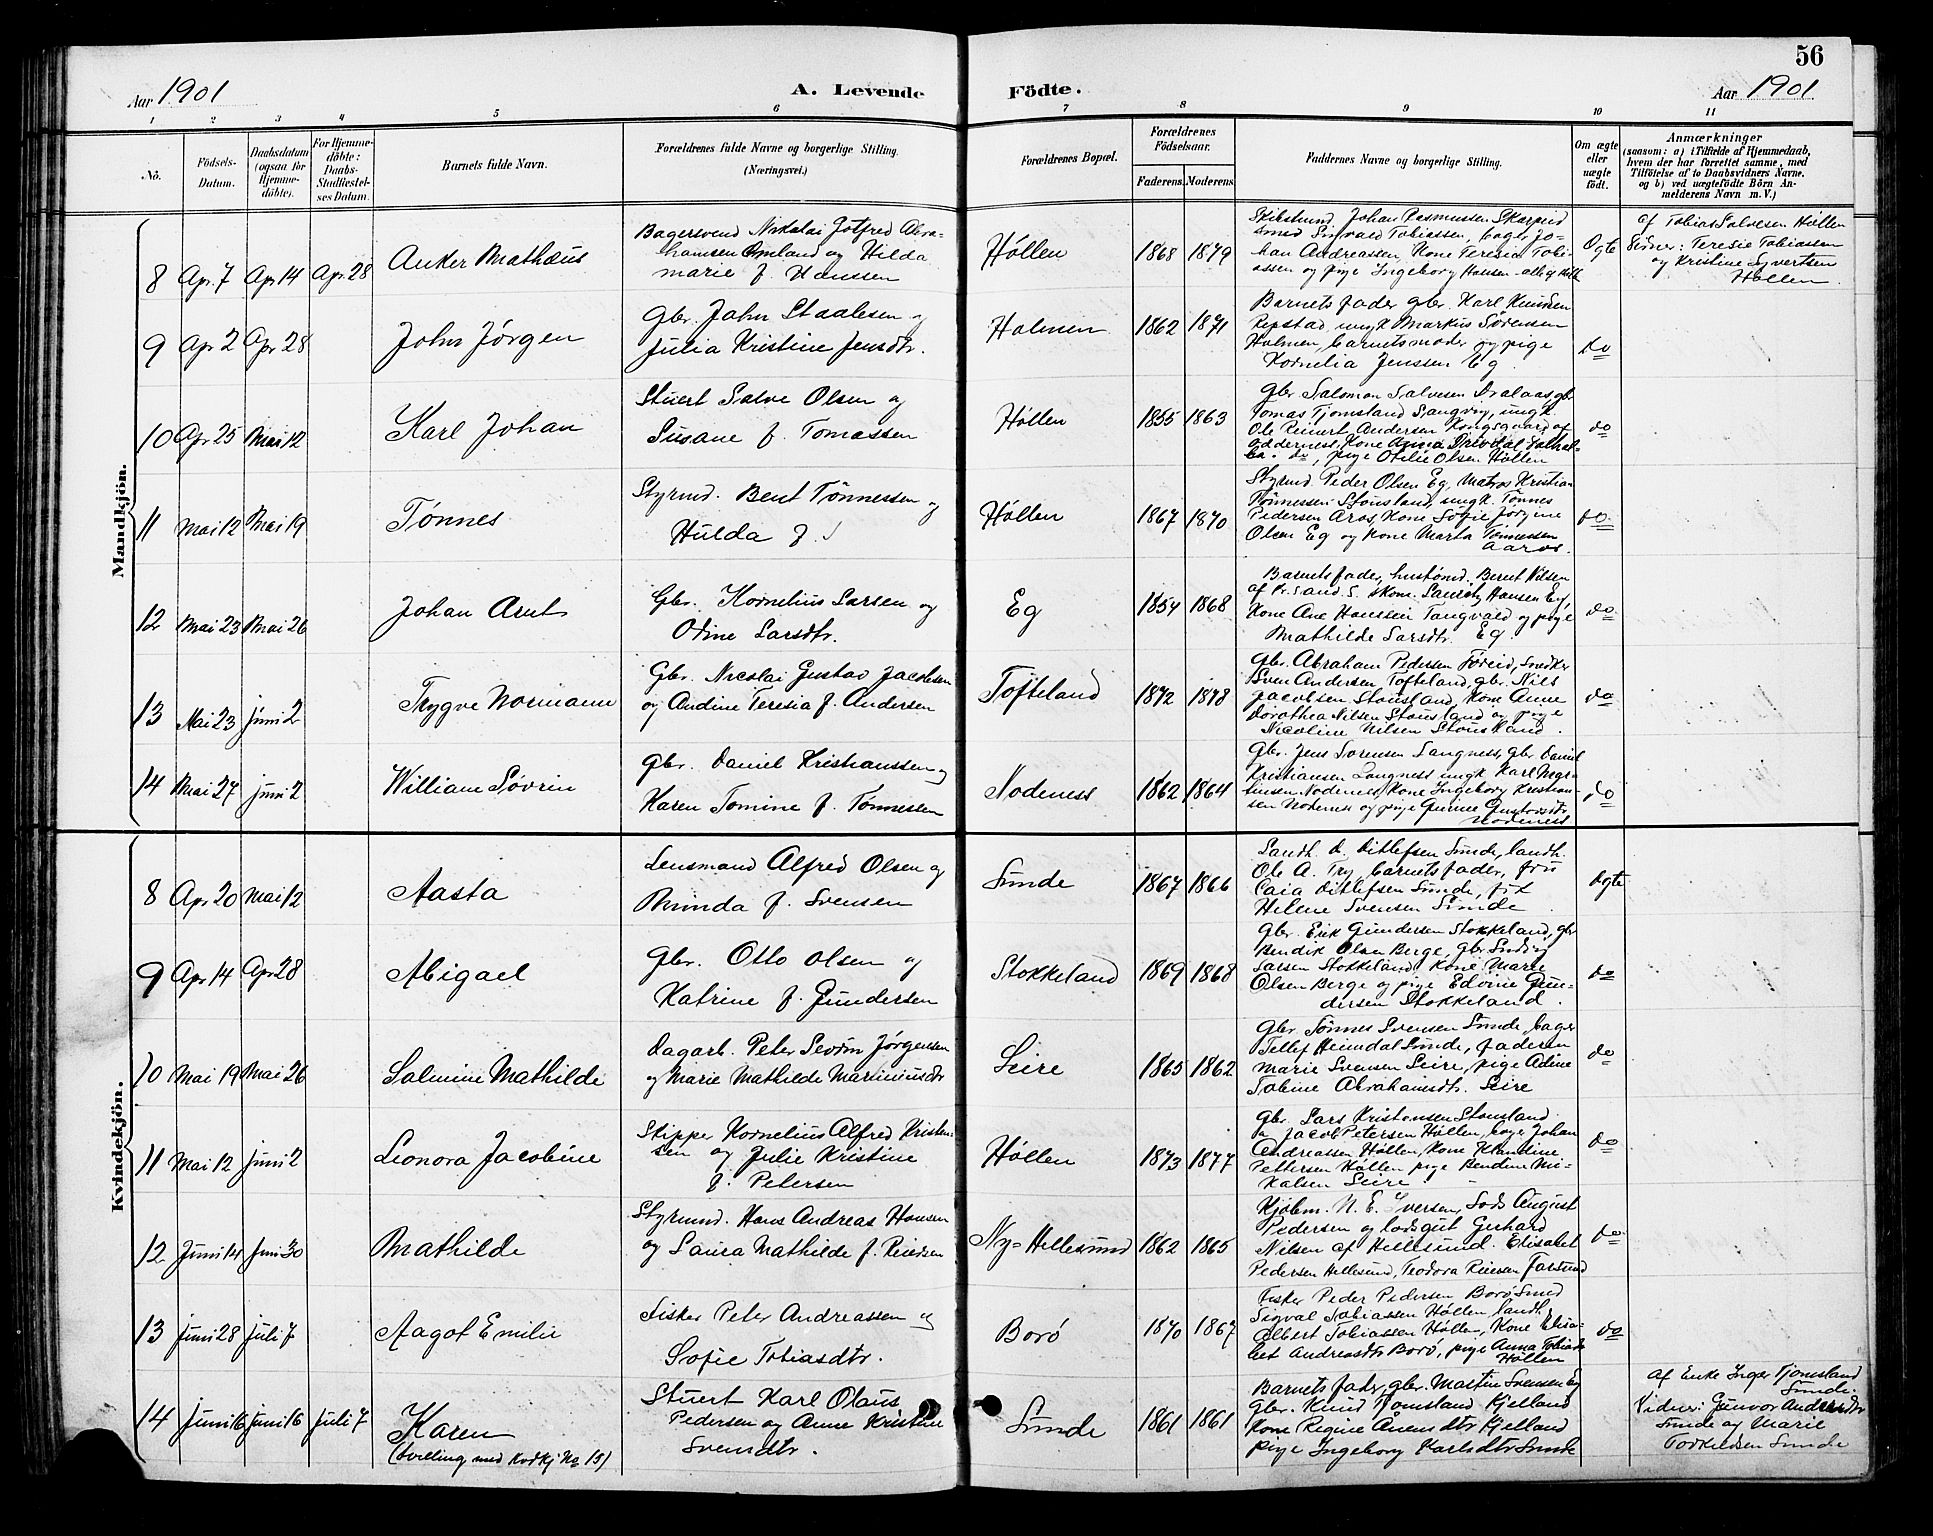 56
Aar 1901 A. Levende Födte. Aar 1901
1 2 3 4 5 6 7 8 9 10 11
No. Födsels-Datum. Daabsdatum (ogsaa for Hjemmedöbte). For Hjemmedöbte: Daabs-Stadfæstelses Datum. Barnets fulde Navn. Forældrenes fulde Navne og borgerlige Stilling. (Næringsvei.) Forældrenes Bopæl. Forældrenes Födselsaar. Faderens. Moderens. Faddernes Navne og borgerlige Stilling. Om ægte eller uægte födt. Anmærkninger (saasom: a) i Tilfælde af Hjemmedaab, hvem der har forrettet samme, med Tilföielse af to Daabsvidners Navne. og b) ved uægtefödte Börn Anmelderens Navn m. V.)
Mandkjön.
8 Apr. 7 Apr 14 Apr. 28 Anker Mathæus
Bagersvend Nikolai Jotfred Abra-
hamsen Omland og Hilda
marie f. Hansen
Höllen 1868 1879
Johan Rasmussen
Smed Sigvald Tobiassen, bager Jo-
han Andreassen, Kone Teresia Tobi-
assen og pige Ingeborg Hansen
Ægte
af Tobias Salvesen Höllen
Teresie Tobiassen
og Kristine Syvertsen
Höllen.
9 Apr 2 Apr 28 John Jörgen
Gbr. John Staalesen og
Julia Kristine Jensdtr.
Holmen 1862 1871
Barnets fader gbr. Karl Knudsen
Repstad, ungk Markus Sörensen
Holmen, barnets moder og pige
Kornelia Jenssen Eg.
do
10 Apr 25 Mai 12 Karl Johan
Stuert Salve Olsen og
Susane f. Tomassen
Höllen 1855 1863
Gbr Salomon Salvesen
Tomas Tjomsland Langvig, ungk.
Ole Reinert Andersen Kongsgaard af
Oddernes, Kone Anna
do, pige Otelie Olsen Höllen
do
11 Mai 12 Mai 19 Tönnes
Styrmd. Bent Tönnessen og
Hulda f.
Höllen 1867 1870
Styrmd Peder Olsen Eg, Matros Kristian
Tönnessen Stousland, ungk. Tönnes
Pedersen Aros, Kone Sofie Jörgine
Olsen Eg og Kone Marta Tönnessen
Aaros.
do
12 Mai 23 Mai 26 Johan Arnt
Gbr. Kornelius Larsen og
Odine Larsdtr.
Eg 1854 1868
Barnets fader, husmd. Bernt Nilsen
skom. Lauritz Hansen Eg,
Kone Ane Hansen Tangvald og pige
Mathilde Larsdtr. Eg.
do
13 Mai 23 Juni 2 Trygve Normann
Gbr. Nicolai Gustav Jacobsen
og Andine Teresia f. Andersen
Tofteland 1872 1878
Gbr. Abraham Pedersen Föreid, Snedker
Sven Andersen Tofteland, gbr. Nils
Jacobsen Stousland, Kone Anne
Dorothea Nilsen Stousland og pige
Nicoline Nilsen Stousland.
do
14 Mai 27 Juni 2 William Sövrin
Gbr. Daniel Kristianssen og
Karen Tomine f. Tönnessen
Nodeness 1862 1864
Gbr. Jens Sorensen Langness, gbr. Daniel
Kristiansen Langness ungk Karl
Nodeness, Kone Ingeborg Kristian-
sen Nodeness og pige Gurine Gustavsdtr
Nodeness
do
Kvindekjön.
8 Apr 20 Mai 12 Aasta
Lensmand Alfred Olsen og
Minda f. Svensen
Sunde 1867 1866
Landh. D. Ditlefsen Sunde, landh.
Ole A. Try, barnets fader, fru
Caia Ditlefsen Sunde, frk
Helene Svensen Sunde
Ægte
9 Apr 14 Apr 28 Abigael
Gbr. Otto Olsen og
Katrine f. Gundersen
Stokkeland 1869 1868
Gbr. Erik Gundersen Stokkeland, gbr
Bendik Olsen Berge, gbr Ludvig
Larsen Stokkeland, Kone Marie
Olsen Berge og pige Edvine Gun-
dersen Stokkeland.
do
10 Mai 19 Mai 26 Salmine Mathilde
Dagarb. Peter Sevrin Jörgensen
og Marie Mathilde Mariniusdtr
Leire 1865 1862
Gbr Tönnes Svensen Sunde, bager
Tellef Heimdal Sunde, faderen
Marie Svensen Leire, pige Adine
Tobine Abrahamsdtr. Leire
do
11 Mai 12 Juni 2 Leonora Jacobine
Skipper Kornelius Alfred Kristen-
sen og Julie Kristine
f. Petersen
Höllen 1873 1877
Gbr. Lars Kristensen Stousland
Jacob Petersen Höllen, bager Johan
Andreassen Höllen, Kone Klandine
Pettersen Höllen pige Bendine Mi-
kalsen Leire
do
12 Juni 14 Juni 30 Mathilde
Styrmd. Hans Andreas Hansen
og Laura Mathilde f. Reiersen
Ny-Hellesund 1862 1865
Kjöbm. N. E. Iversen, Lods August
Pedersen og lodsgut Gerhard
Nilsen af Hellesund. Elisabet
Pedersen Hellesund, Teodora Reiersen Farsund
do
13 Juni 28 Juli 7 Aagot Emilie
Fisker Peter Andreassen og
Sofie Tobiasdtr.
Borö 1870 1867
Fisker Peder Pedersen Borö Smed
Sigval Tobiassen Höllen landh.
Albert Tobiassen Höllen, Kone Elisa-
bet Andreasdtr Borö, pige Anna Tobiasdtr
Höllen
do
14 Juni 16 Juni 16 Juli 7 Karen
(tvilling med Kvdkj No 15)
Stuert Karl Olaus
Pedersen og Anne Kristine
Svendtr.
Sunde 1861 1861
Barnets fader, gbr. Martin Svensen Eg
Gbr. Knud Tjomsland Kjelland
Kone Regine Anensdtr Kjelland
pige Ingeborg Karlsdtr Sunde
af Enke Inger Tjomsland
Sunde.
Vidner: Gunvor Andersdtr
Sunde og Marie
Torkildsen Sunde